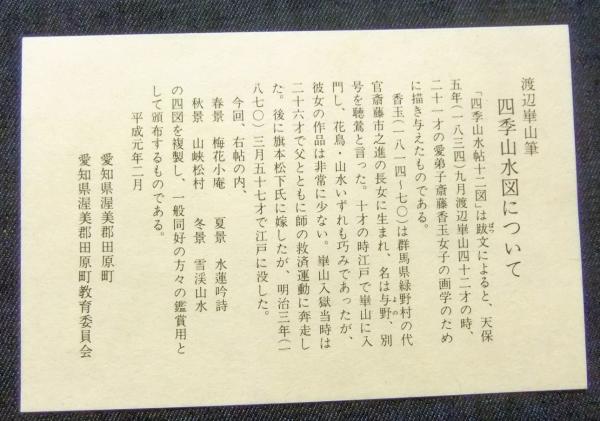 渡辺崋山筆
四季山水図について
「四季山水帖十二図」は跋文によると、天保
ばつ
五年(一八三四)九月渡辺崋山四十二才の時、
二十一才の愛弟子斎藤香玉女子の画学のため
に描き与えたものである。
香玉(一八一四〜七〇)は群馬県緑野村の代
官斎藤市之進の長女に生まれ、名は与野、別
よの
号を聴鶯と言った。十才の時江戸で崋山に入
門し、花鳥・山水いずれも巧みであったが、
彼女の作品は非常に少ない。崋山入獄当時は
二十六才で父とともに師の救済運動に奔走し
た。後に旗本松下氏に嫁したが、明治三年(一
八七〇)三月五十七才で江戸に没した。
今回、右帖の内、
春景 梅花小庵 夏景 水蓮吟詩
秋景 山峡松村 冬景 雪渓山水
の四図を複製し、一般同好の方々の鑑賞用と
して頒布するものである。
平成元年二月
愛知県渥美郡田原町
愛知県渥美郡田原町教育委員会